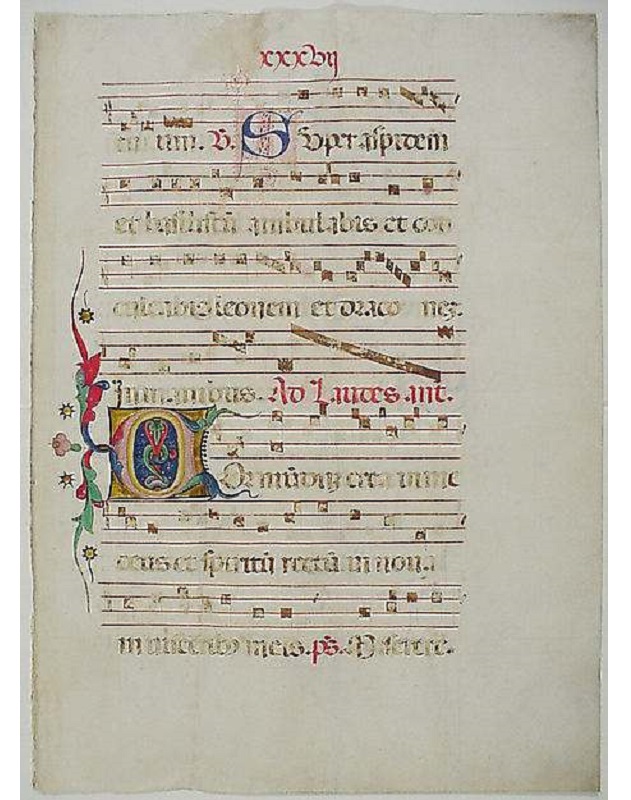 xxxvij
tuum. V. Super aspidem
et basiliscū ambulabis et con
culcabis leonem et draco nez.
In manibus. Ad Laudes. ant.
Cor mūdū crea in me
deus et spiritū rectū in noua
in visceribꝫ meis. ps. Miserere.